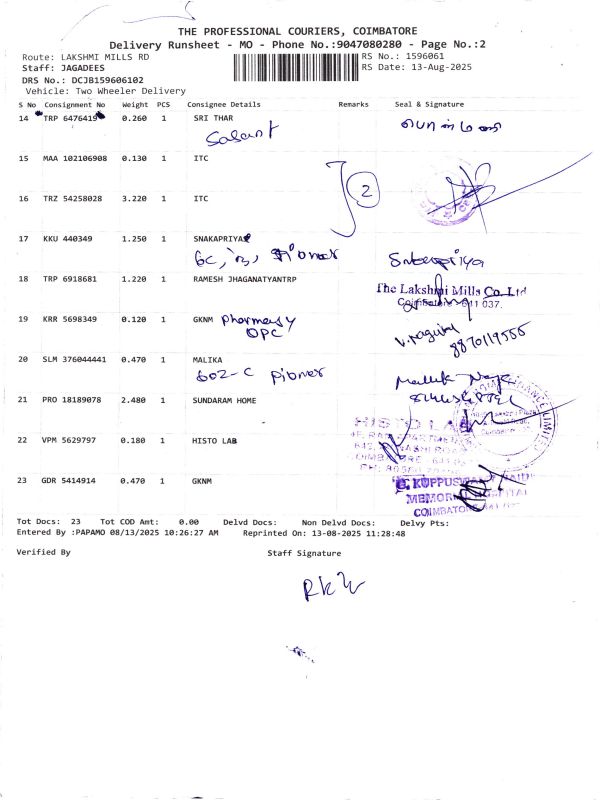 THE PROFESSIONAL COURIERS, COIMBATORE
Delivery Runsheet - MO - Phone No.:9047080280 - Page No.:2
Route: LAKSHMI MILLS RD RS No.: 1596061
Staff: JAGADEES RS Date: 13-Aug-2025
DRS No.: DCJB159606102
Vehicle: Two Wheeler Delivery
S No Consignment No Weight PCS Consignee Details Remarks Seal & Signature
14 TRP 6476419 0.260 1 SRI THAR
15 MAA 102106908 0.130 1 ITC
16 TRZ 54258028 3.220 1 ITC
2
17 KKU 440349 1.250 1 SNAKAPRIYA
18 TRP 6918681 1.220 1 RAMESH JHAGANATYANTRP
The Lakshmi Mills Co. Ltd
Coimbatore - 641 037.
19 KRR 5698349 0.120 1 GKNM pharmacy
OPC
8870119555
20 SLM 376044441 0.470 1 MALIKA
602-C pioner
21 PRO 18189078 2.480 1 SUNDARAM HOME
22 VPM 5629797 0.180 1 HISTO LAB
HISTO LAB
23 GDR 5414914 0.470 1 GKNM
G. KUPPUSWAMY NAIDU
MEMORIAL HOSPITAL
COIMBATORE
Tot Docs: 23 Tot COD Amt: 0.00 Delvd Docs: Non Delvd Docs: Delvy Pts:
Entered By :PAPAMO 08/13/2025 10:26:27 AM Reprinted On: 13-08-2025 11:28:48
Verified By Staff Signature